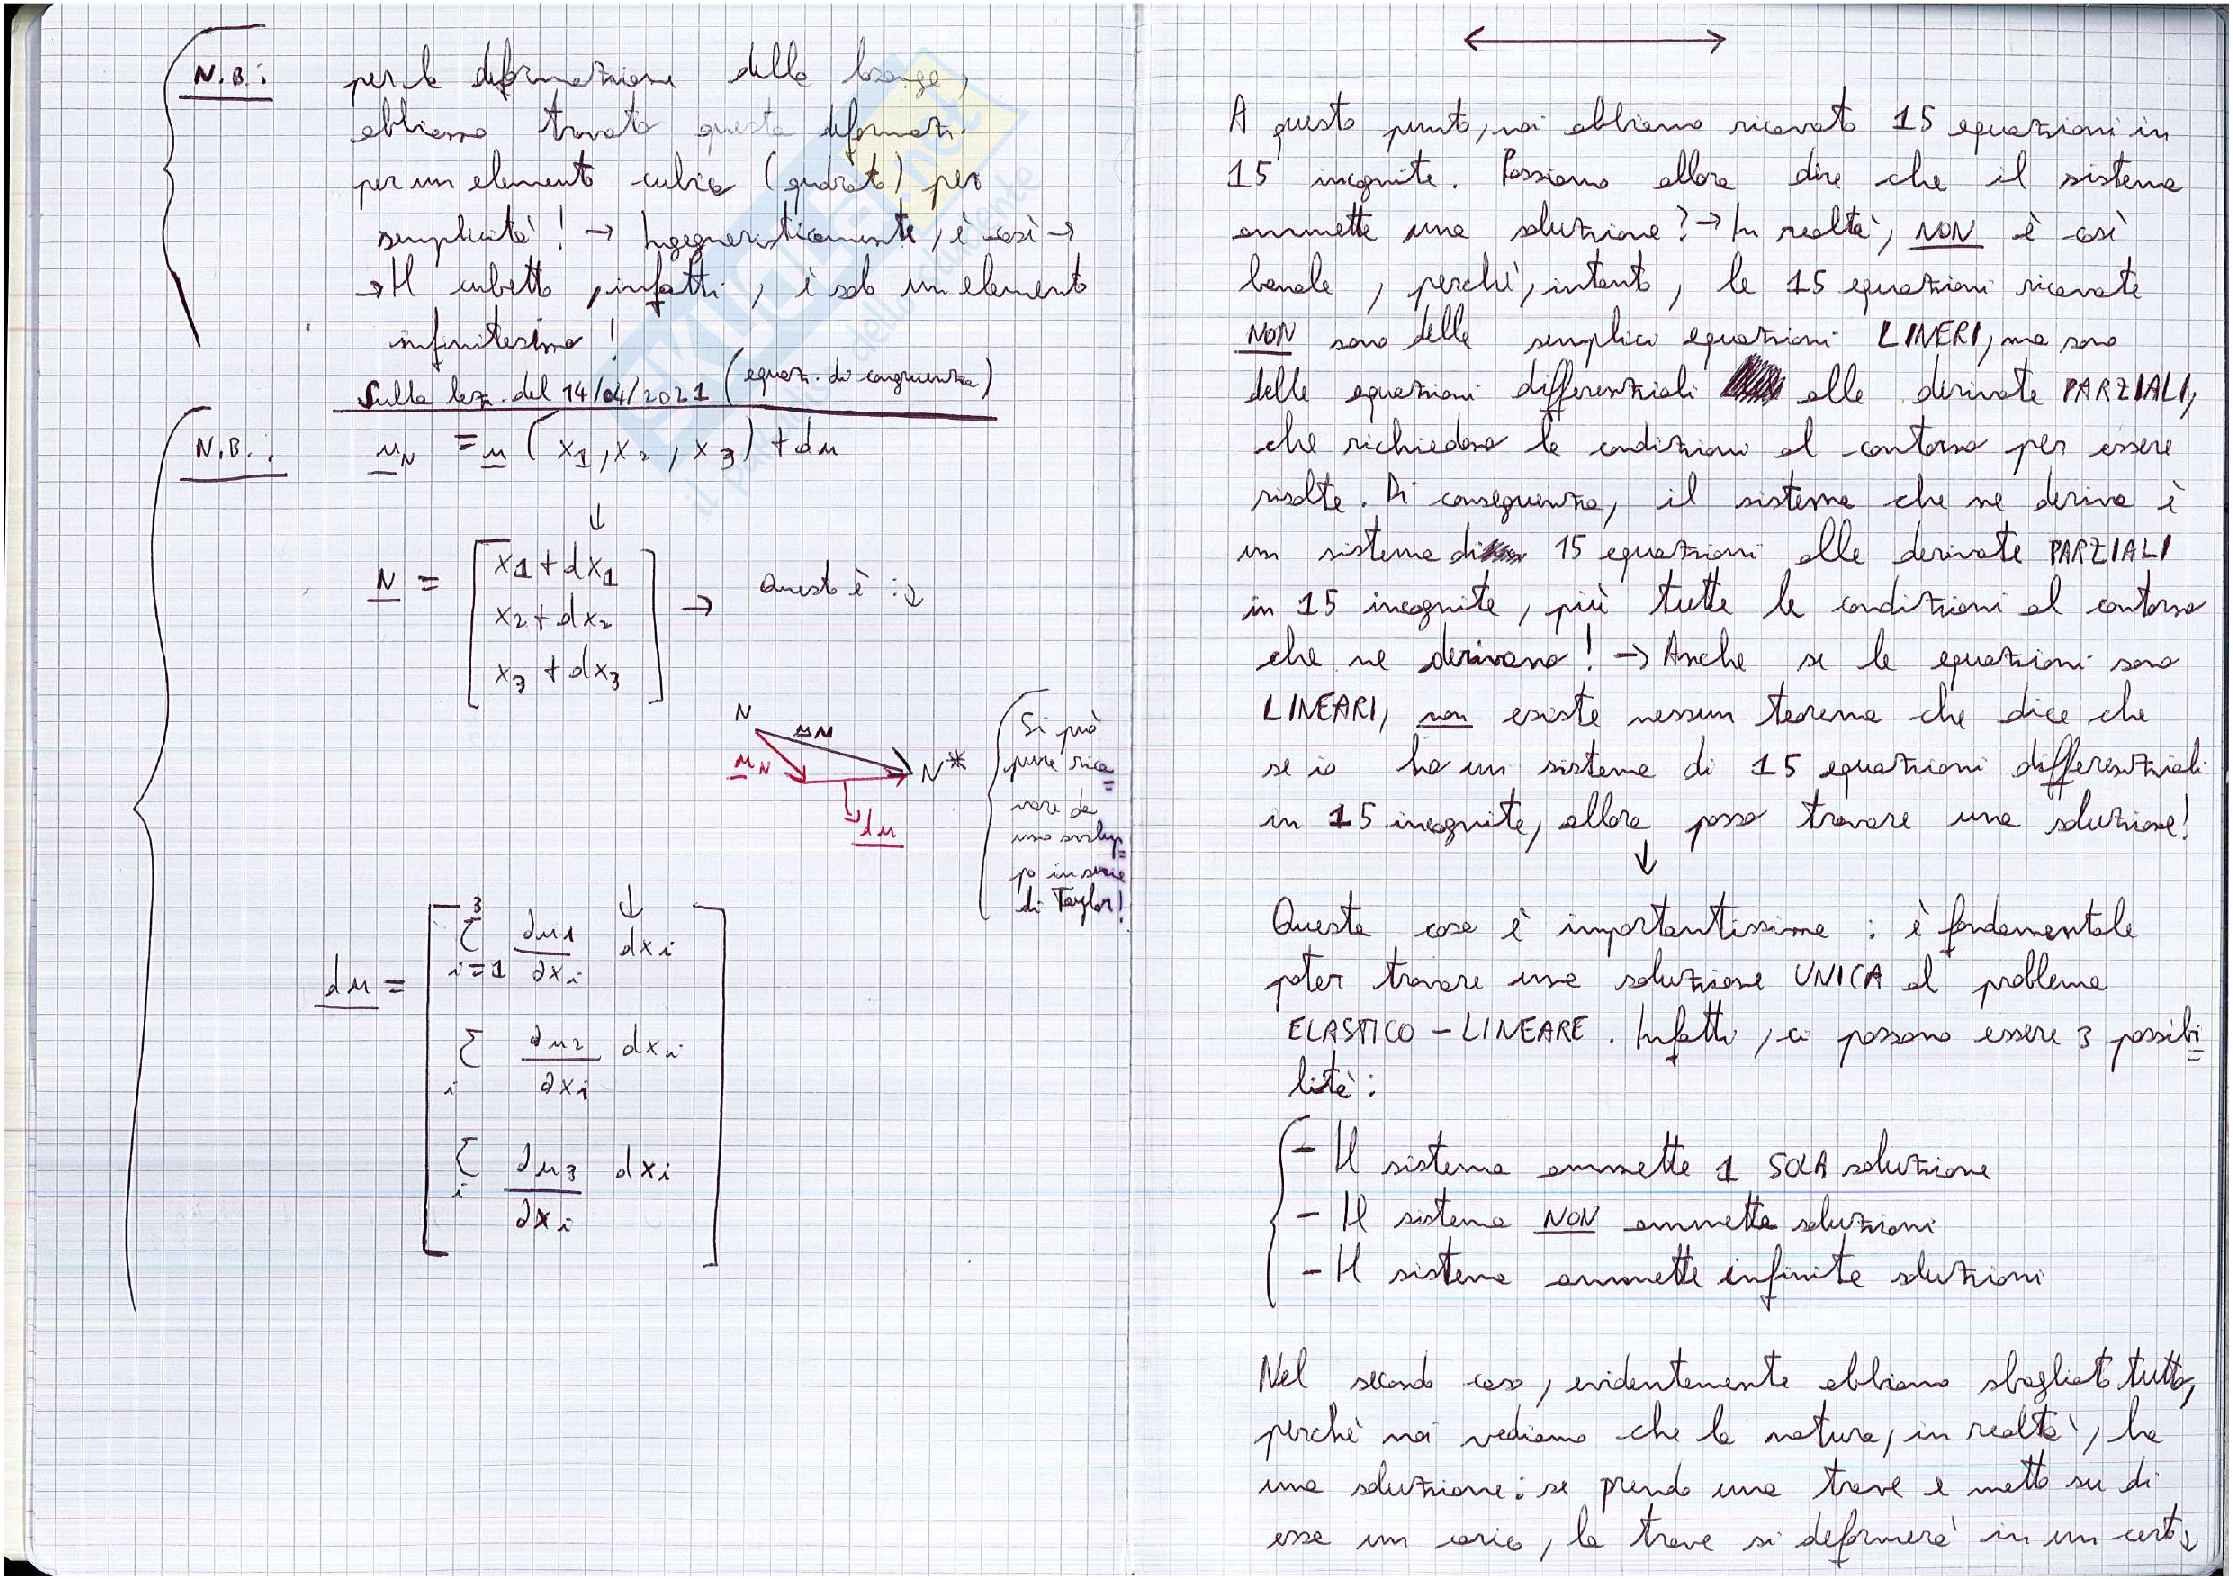 N.B.: per la deformazione della losanga,
abbiamo trovato questa deformaz.
per un elemento cubico (quadrato) per
semplicità! → Ingegneristicamente, è così →
→ Il cubetto, infatti, è solo un elemento
infinitesimo!
Sulla lez. del 14/04/2021 (equaz. di congruenza)
N.B.: u_N = u (x1, x2, x3) + du
↓
N = [x1 + dx1
x2 + dx2
x3 + dx3] → Questo è: ↓
N
u_N
u_N
N*
du
Si può
pure rica=
vare da
uno svilup=
po in serie
di Taylor!
↓
du = [3 Σ i=1 ∂u1/∂xi dxi
Σ i ∂u2/∂xi dxi
Σ i ∂u3/∂xi dxi]
A questo punto, noi abbiamo ricavato 15 equazioni in
15 incognite. Possiamo allora dire che il sistema
ammette una soluzione? → In realtà, NON è così
banale, perchè, intanto, le 15 equazioni ricavate
NON sono delle semplici equazioni LINERI, ma sono
delle equazioni differenziali alle derivate PARZIALI,
che richiedono le condizioni al contorno per essere
risolte. Di conseguenza, il sistema che ne deriva è
un sistema di 15 equazioni alle derivate PARZIALI
in 15 incognite, più tutte le condizioni al contorno
che ne derivano! → Anche se le equazioni sono
LINEARI, non esiste nessun teorema che dice che
se io ho un sistema di 15 equazioni differenziali
in 15 incognite, allora posso trovare una soluzione!
↓
Questa cosa è importantissima: è fondamentale
poter trovare una soluzione UNICA al problema
ELASTICO - LINEARE. Infatti, ci possono essere 3 possibi=
lità:
- Il sistema ammette 1 SOLA soluzione
- Il sistema NON ammette soluzioni
- Il sistema ammette infinite soluzioni
Nel secondo caso, evidentemente abbiamo sbagliato tutto,
perchè noi vediamo che la natura, in realtà, ha
una soluzione: se prendo una trave e metto su di
essa un carico, la trave si deformerà in un certo ↓